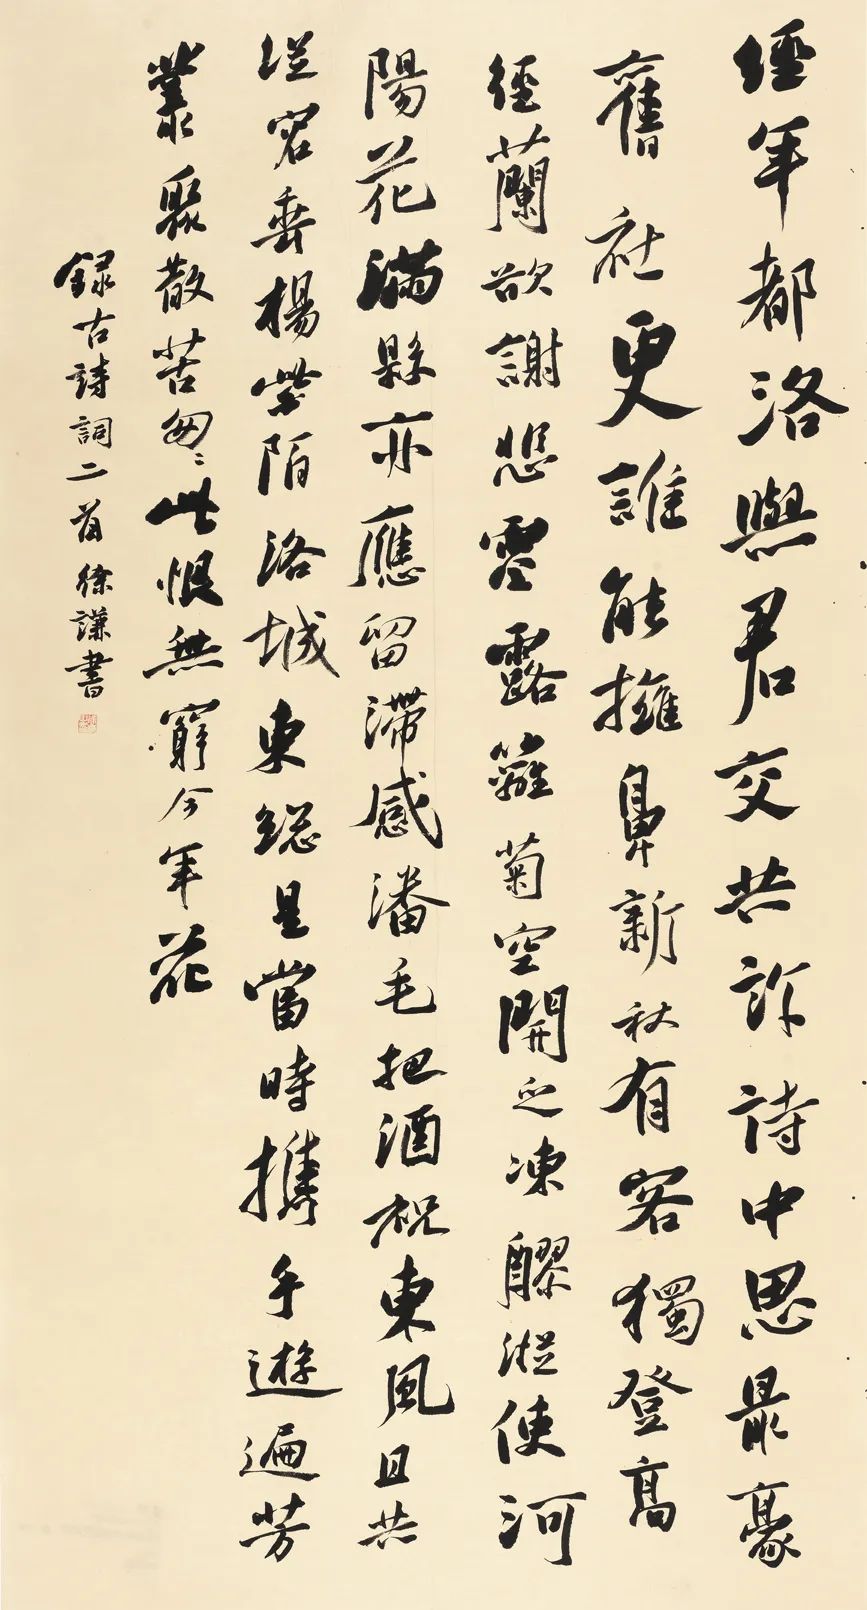 經年都洛與君交共許詩中思最豪
舊社更誰能擁鼻新秋有客獨登高
徑蘭欲謝悲零露籬菊空開乏凍醪縱使河
陽花滿縣亦應留滯感潘毛把酒祝東風且共
從容垂楊紫陌洛城東總是當時攜手遊遍芳
叢聚散苦匆〻此恨無窮今年花
錄古詩詞二首徐謙書